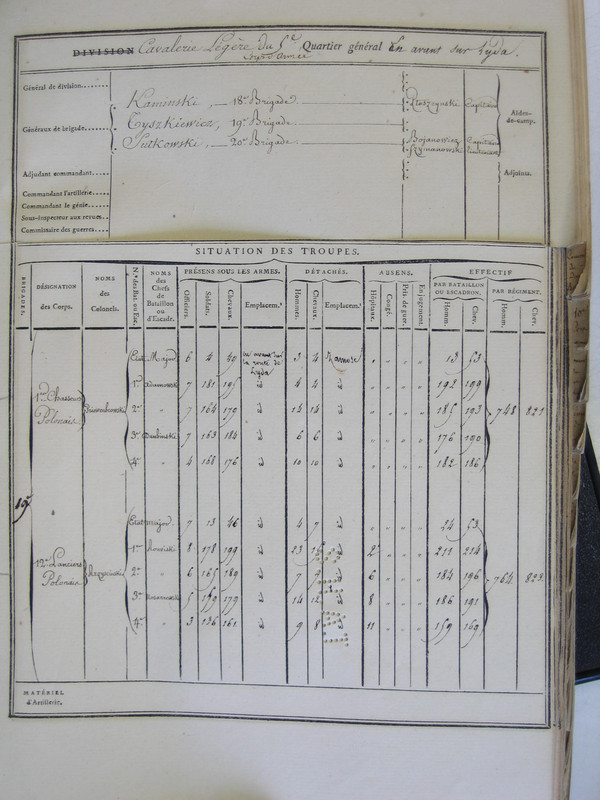 DIVISION Cavalerie Légère du 5e Corps d'Armée Quartier général En avant sur Lyda.
Général de division
Généraux de brigade
Kaminski, — 18e Brigade
Tyszkiewicz, 19e Brigade
Sutkowski, — 20e Brigade
Capitaine
Bojanowicz Capitaine
Szymanowski Lieutenant
Aides-
de-camp.
Adjudant commandant
Adjoints.
Commandant l'artillerie
Commandant le génie
Sous-inspecteur aux revues
Commissaire des guerres
SITUATION DES TROUPES.
BRIGADES.
DÉSIGNATION
des Corps.
NOMS
des
Colonels.
N.os des Bat. ou Esc.
NOMS
des Chefs
de
Bataillon
ou
d'Escade.
PRÉSENS SOUS LES ARMES.
Officiers. Soldats. Chevaux. Emplacem.t
DÉTACHÉS.
Hommes. Chevaux. Emplacem.t
ABSENS.
Hôpitaux. Congé. Pris. de guer. En jugement
EFFECTIF
PAR BATAILLON
OU ESCADRON.
Homm. Chev.
PAR RÉGIMENT.
Homm. Chev.
19e
1er Chasseurs
Polonais
Etat Major 6 4 40 en avant sur la route de Lyda 3 4 13 53
1er 7 181 195 d 4 4 192 199
2e 7 164 179 d 14 14 185 193 748 821
3e 7 163 184 d 6 6 176 190
4e 4 168 176 d 10 10 182 186
12e Lanciers
Polonais
Etat major 7 13 46 d 4 7 d 24 53
1er 8 178 199 d 23 15 2 211 214
2e 6 165 189 d 7 7 6 184 196 764 823
3e 5 159 179 d 14 12 8 186 191
4e 3 136 161 d 9 8 11 159 169
MATÉRIEL
d'Artillerie.